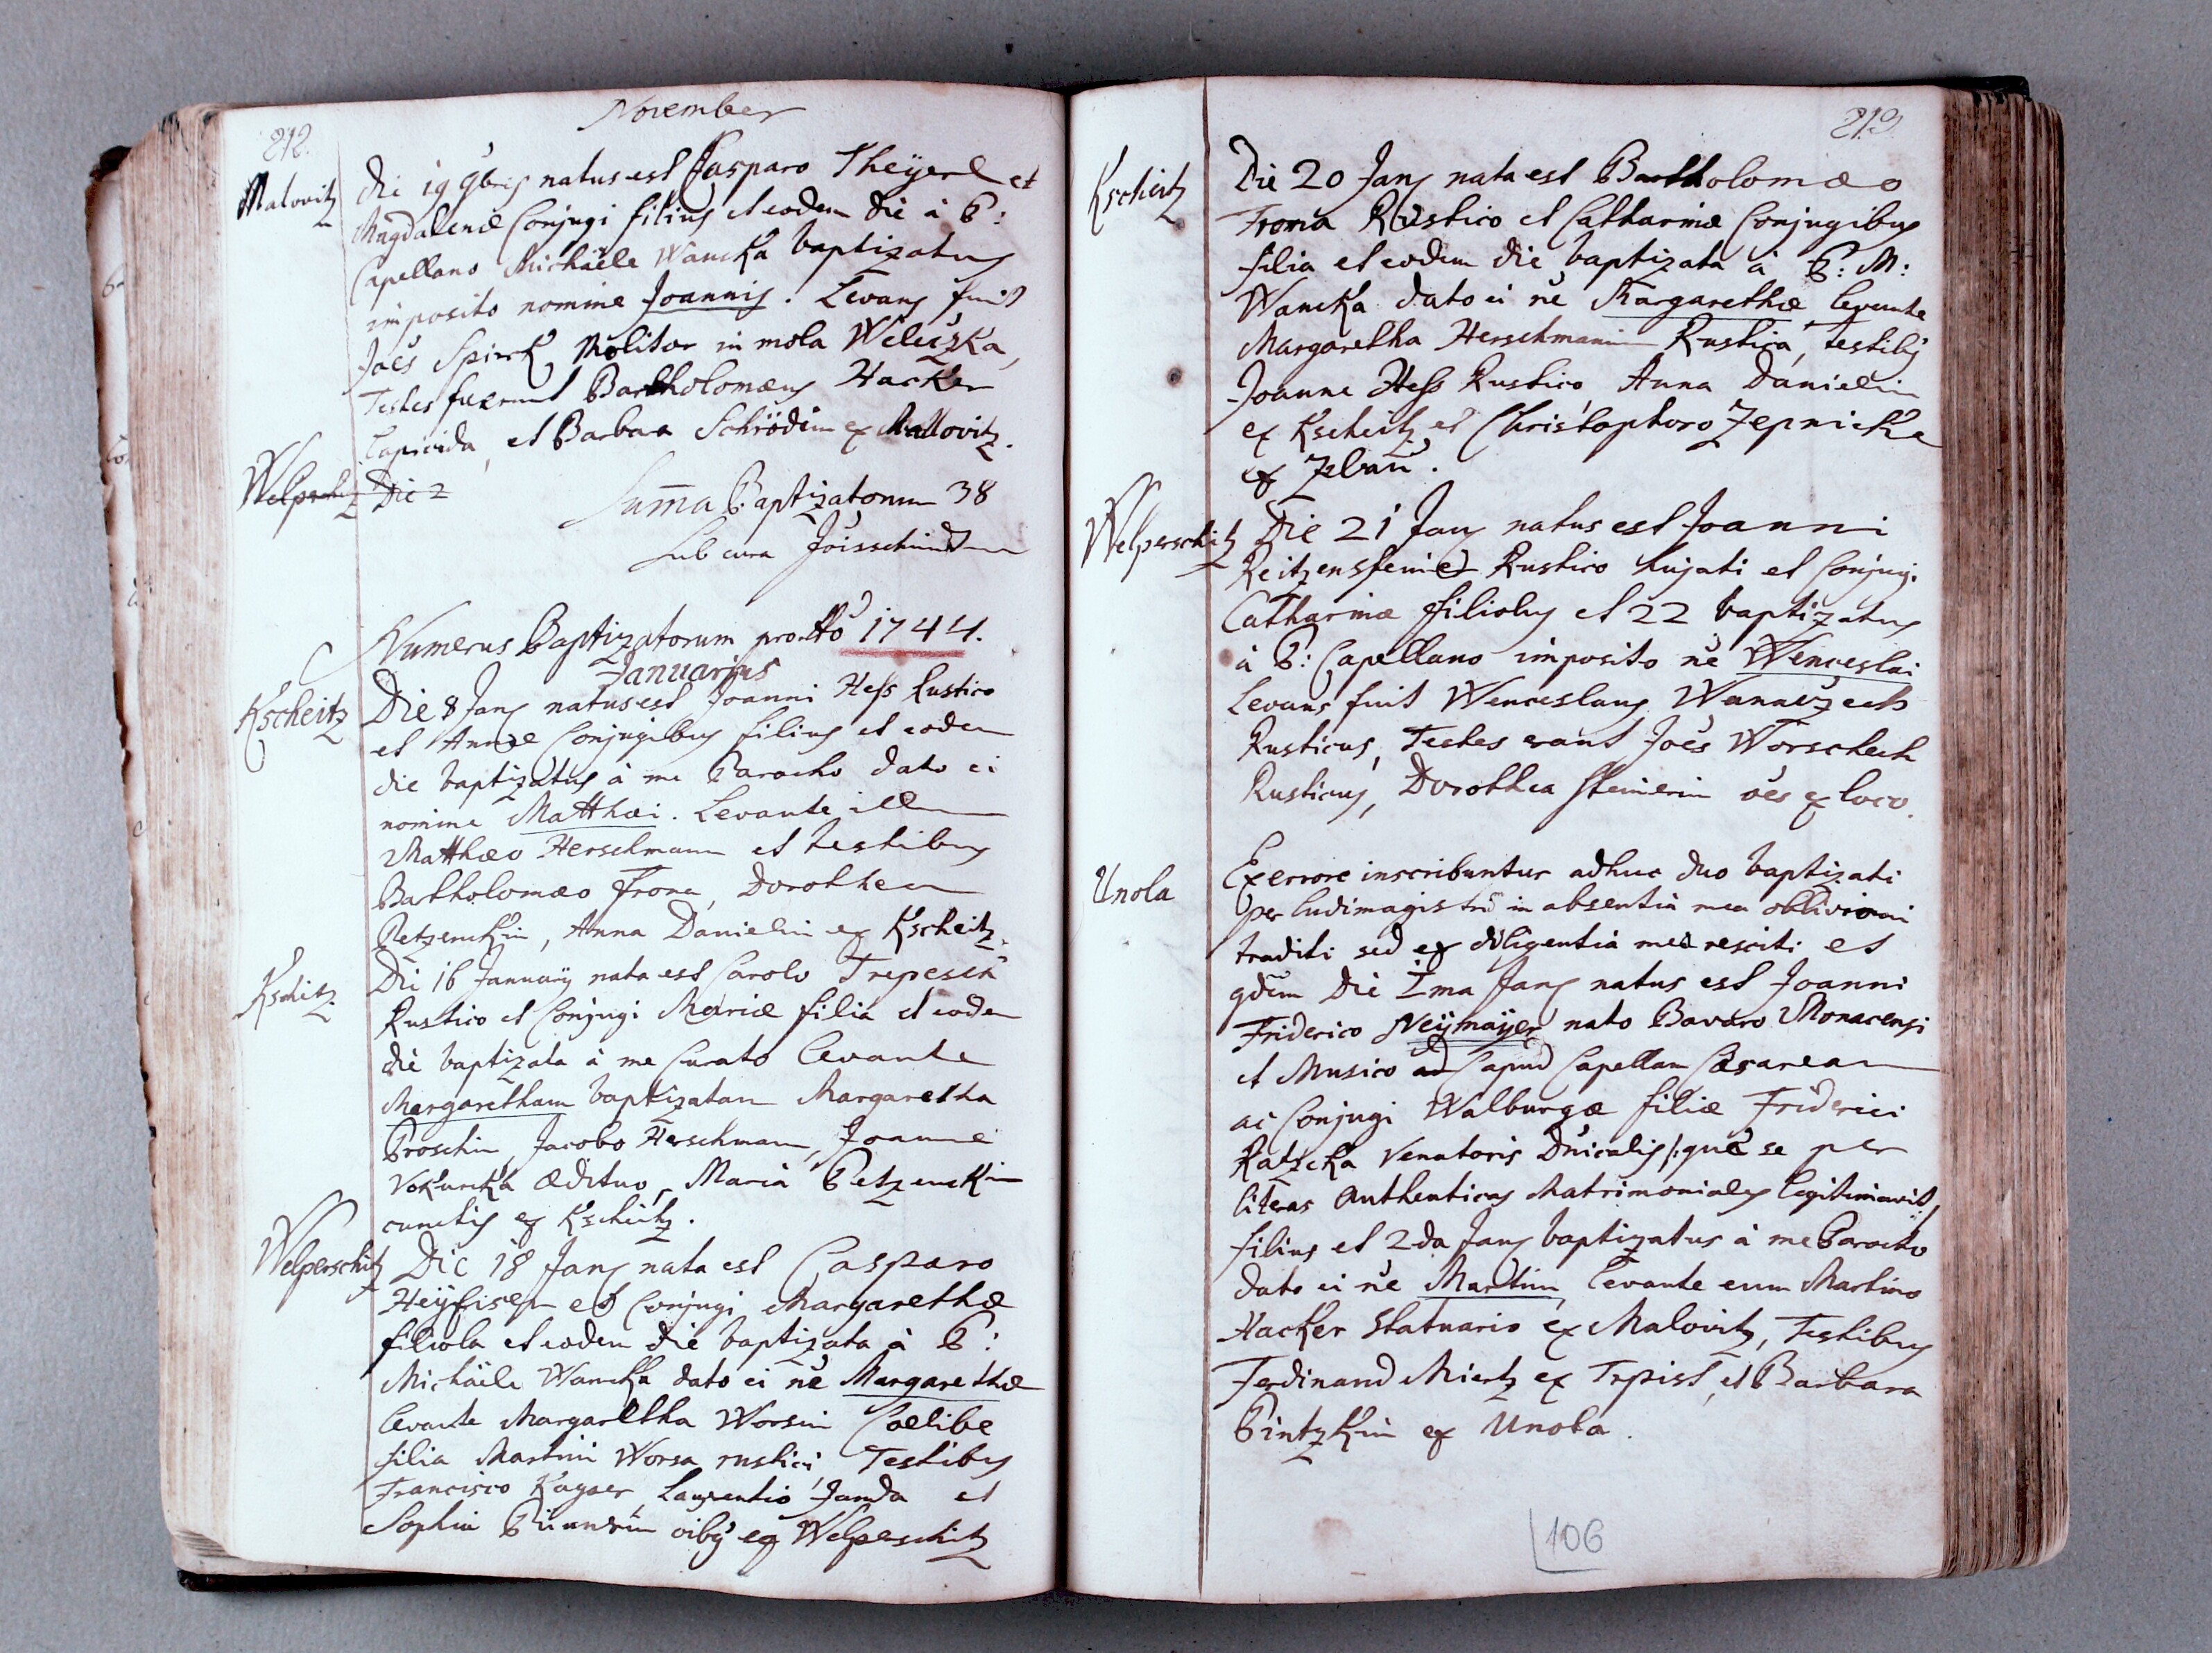 November
212.
Malovitz
Die 19 9bris natus est Casparo Theÿerl et
Magdalenæ Conjugi filius et eodem die à P:
Capellano Michaële Wancka baptizatus
imposito nomine Joannis. Levans fuit
Joēs Spirk Molitor in mola Weleczka,
Testes fuerunt Bartholomæus Hacker
Lapicida, et Barbara Schrödin ex Mallovitz.
Welperschitz Die 2
Sum̄a Baptizatorum 38
Sub cura
Numerus Baptizatorum pro Aō 1744.
Januarius
Kscheitz
Die 8 Janȳ natus est Joanni Hess Rustico
et Annæ Conjugibus filius et eodem
die baptizatus à me Parocho dato ei
nomine Matthæi. Levante illum
Matthæo Herschmann et testibus
Bartholomæo Frona, Dorothea
Petzenckin, Anna Danielin ex Kscheitz.
Kscheitz
Die 16 Januarÿ nata est Carolo Trepesch
Rustico et Conjugi Mariæ filia et eodem
die baptizata à me Curato levante
Margaretham baptizatam Margaretha
Proschin, Jacobo Herschmann, Joanne
Vokurka ædituo, Maria Petzenckin
cunctis ex Kscheitz.
Welperschitz
Die 18 Janȳ nata est Casparo
Heÿfisen et Conjugi Margarethæ
filiola et eodem die baptizata à P:
Michäile Wancka dato ei nē Margarethæ
levante Margaretha Worsin Coelibe
filia Martini Worsa rustici, Testibus
Francisco Kagaer, Laurentio Janda et
Sophia oībȳ ex Welperschitz
213.
Kscheitz
Die 20 Janȳ nata est Bartholomæo
Frona Rustico et Catharinæ Conjugibus
filia et eodem die baptizata à P: M:
Wancka dato ei nē Margarethæ levante
Margaretha Herschmanin Rustica, testibȳ
Joanne Hess Rustico, Anna Danielin
ex Kscheitz et Christophoro Zepnicka
ex Zebau.
Welperschitz
Die 21 Janȳ natus est Joanni
Reitzensteiner Rustico hujati et Conjugi
Catharinæ filiolus et 22 baptizatus
à P: Capellano imposito nē Wenceslai
Levans fuit Wenceslaus Wannczech
Rusticus, Testes erant Joēs Worschech
Rusticus, Dorothea Steinerin oēs ex loco.
Unola
Ex errore inscribuntur adhuc duo baptizati
per ludimagistrū in absentia mea oblivioni
traditi sed ex diligentia mea resciti et
qdēm Die Ima Janȳ natus est Joanni
Friderico Neÿmaÿer nato Bavaro Monacensi
et Musico ad Capud Capellam Cæsaream
ac Conjugi Walburgæ filiæ Friderici
Ratzcka Venatoris Dn̄icalis /:quæ se per
literas authenticas Matrimoniales legitimavit,
filius et 2da Janȳ baptizatus à me Parocho
dato ei nē Martini, levante eum Martino
Hacker Statuario ex Malovitz, Testibus
Ferdinand Miertz ex Trpist, et Barbara
Pintzkin ex Unola.
106